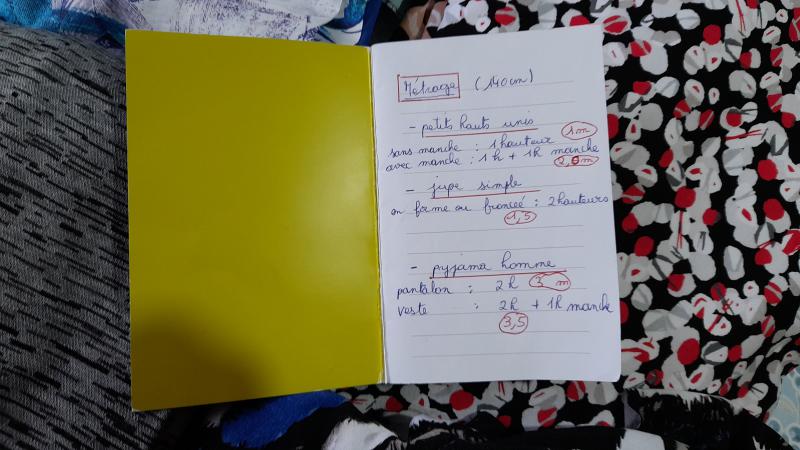 Métrage (140cm)
- petits hauts unis
sans manche : 1 hauteur 1m
avec manche : 1h + 1h manche
m
- jupe simple
en forme ou froncée : 2 hauteurs
1,5
- pyjama homme
pantalon : 2h 3 m
veste : 2h + 1h manche
3,5